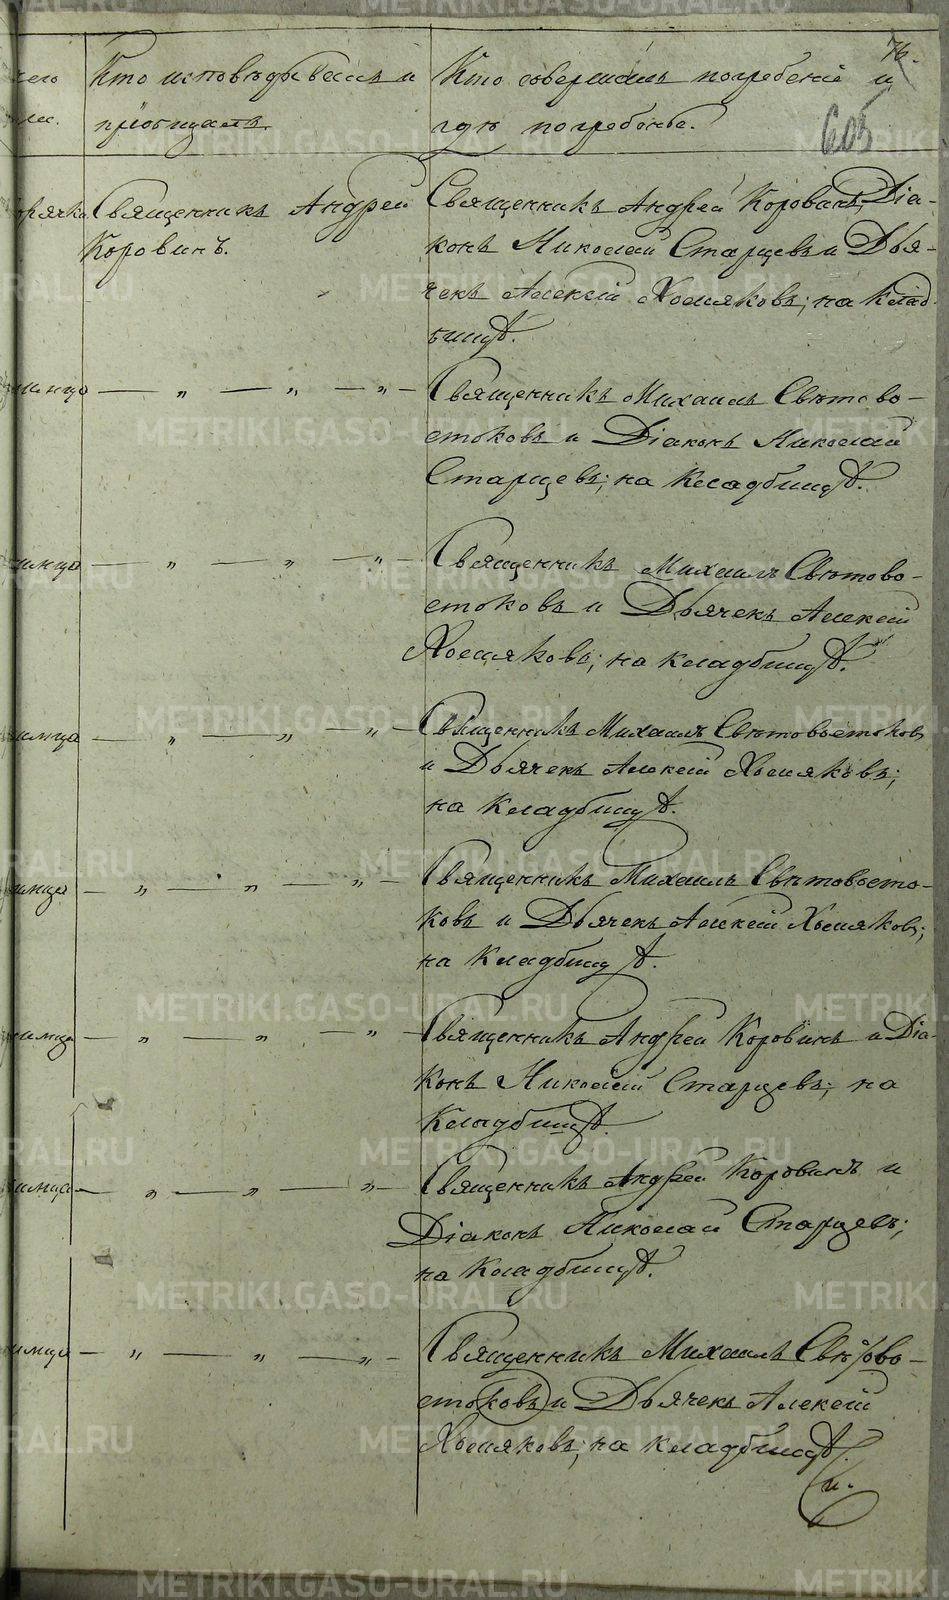 76.
605
Кто исповѣдывалъ и
пріобщалъ.
Кто совершалъ погребеніе и
гдѣ погребены.
горячки
Священникъ Андрей
Коровинъ.
Священникъ Андрей Коровинъ, Діа-
конъ Николай Старцевъ и Дья-
чекъ Алексій Хомяковъ; на клад-
бищѣ.
— „ — „ — „ —
Священникъ Михаилъ Свѣтово-
стоковъ и Діаконъ Николай
Старцевъ; на кладбищѣ.
— „ — „ — „ —
Священникъ Михаилъ Свѣтово-
стоковъ и Дьячекъ Алексій
Хомяковъ; на кладбищѣ.
— „ — „ — „ —
Священникъ Михаилъ Свѣтовостоковъ
и Дьячекъ Алексій Хомяковъ;
на кладбищѣ.
— „ — „ — „ —
Священникъ Михаилъ Свѣтовосто-
ковъ и Дьячекъ Алексій Хомяковъ;
на кладбищѣ.
— „ — „ — „ —
Священникъ Андрей Коровинъ и Діа-
конъ Николай Старцевъ; на
кладбищѣ.
— „ — „ — „ —
Священникъ Андрей Коровинъ и
Діаконъ Николай Старцевъ;
на кладбищѣ.
— „ — „ — „ —
Священникъ Михаилъ Свѣтово-
стоковъ и Дьячекъ Алексій
Хомяковъ; на кладбищѣ.
METRIKI.GASO-URAL.RU